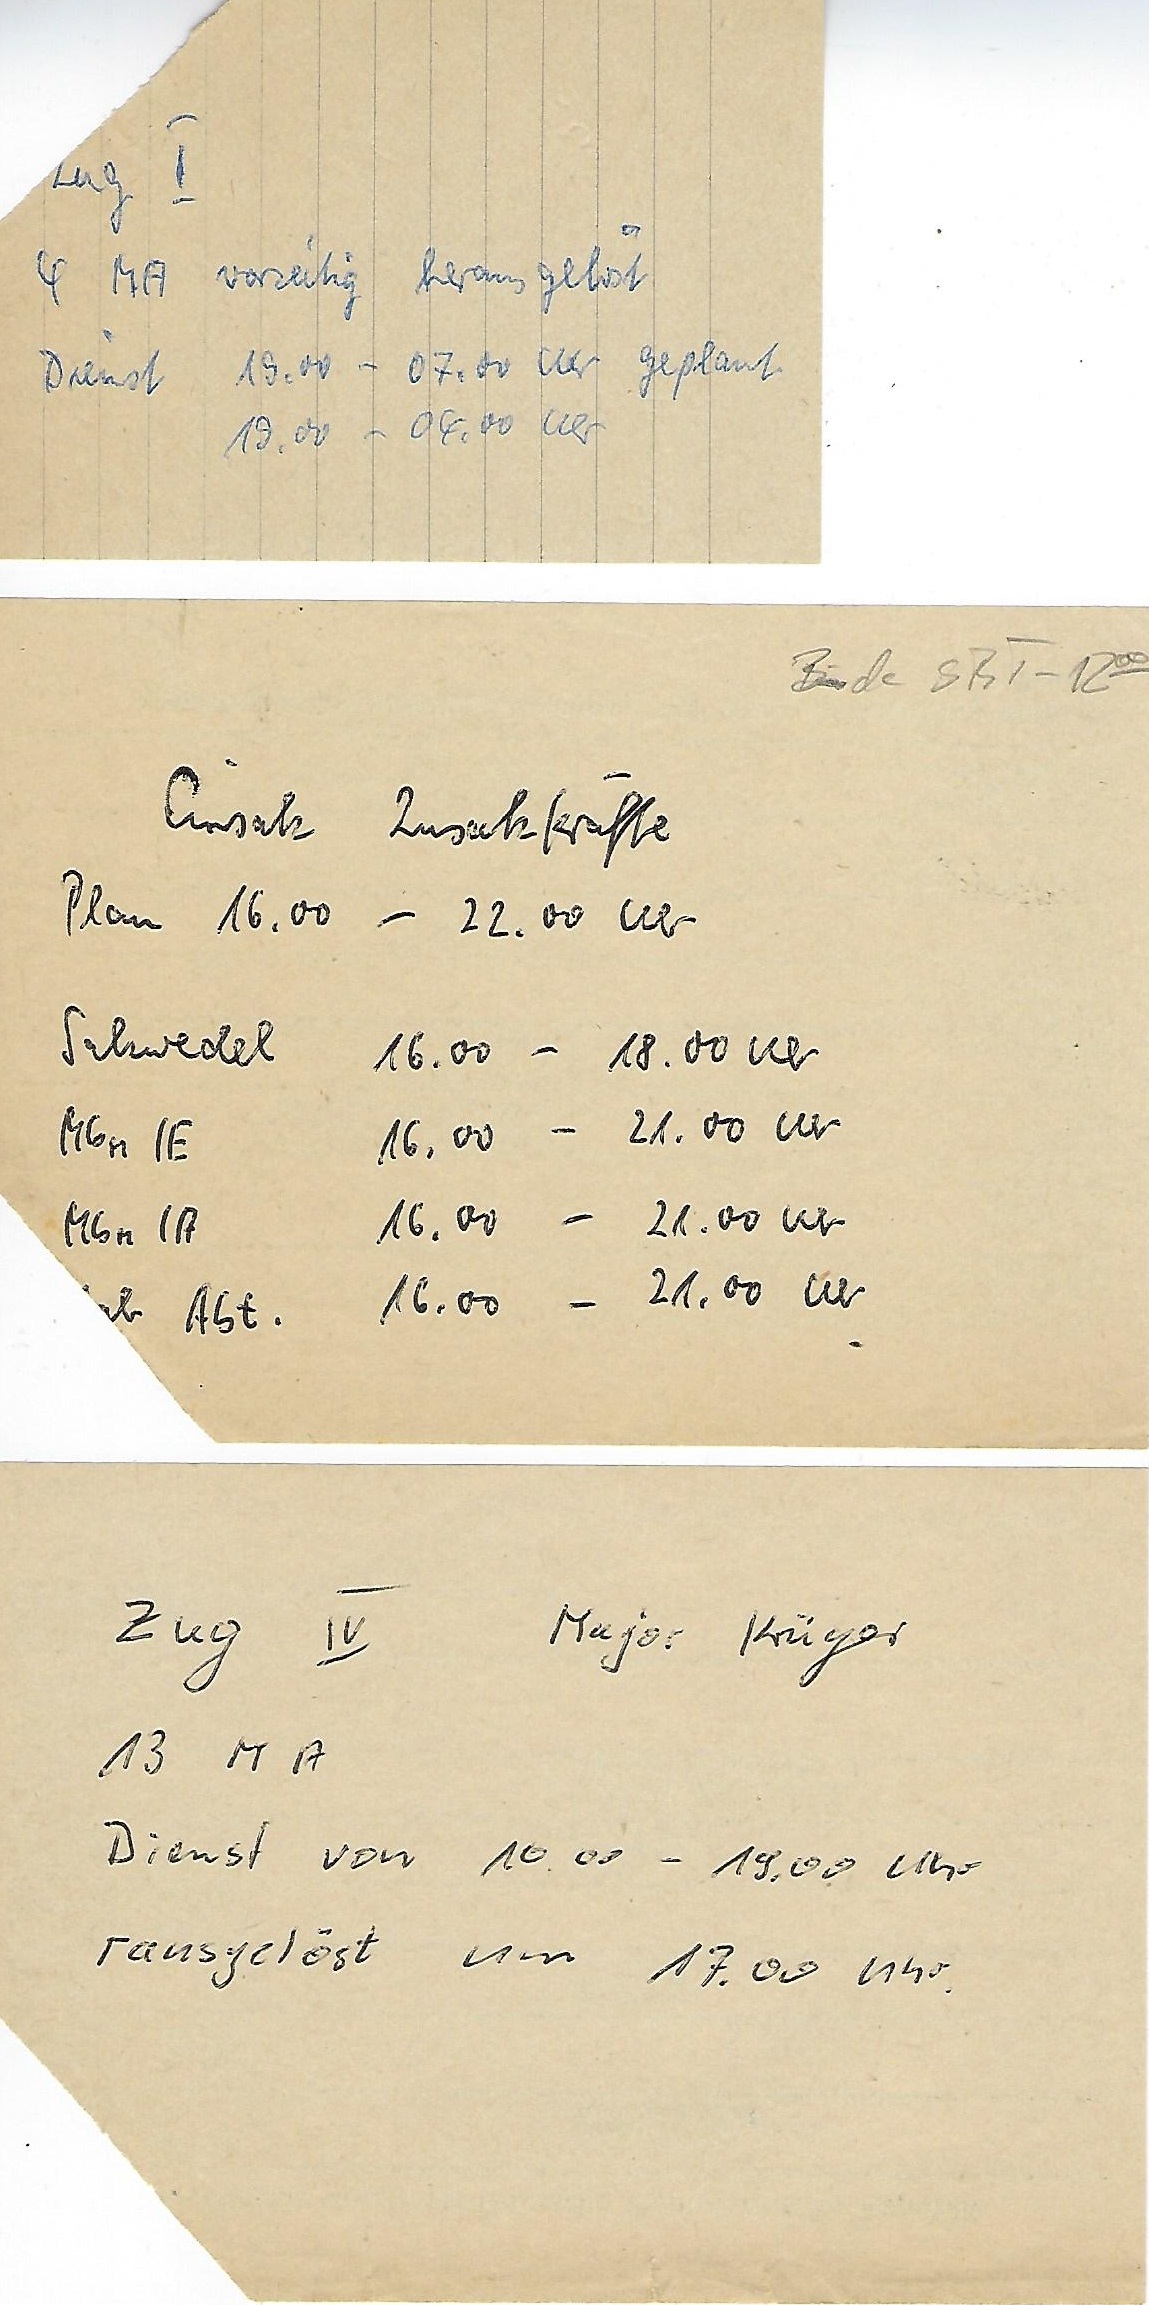 Zug I
4 MA vorzeitig herausgelöst
Dienst 19.00 - 07.00 Uhr geplant
19.00 - 04.00 Uhr
- 12 00
Einsatz Zusatzkräfte
Plan 16.00 - 22.00 Uhr
Salzwedel 16.00 - 18.00 Uhr
Mbn IE 16.00 - 21.00 Uhr
Mbn IA 16.00 - 21.00 Uhr
Abt. 16.00 - 21.00 Uhr
Zug IV Major Krüger
13 MA
Dienst von 10.00 - 19.00 Uhr
rausgelöst um 17.00 Uhr.